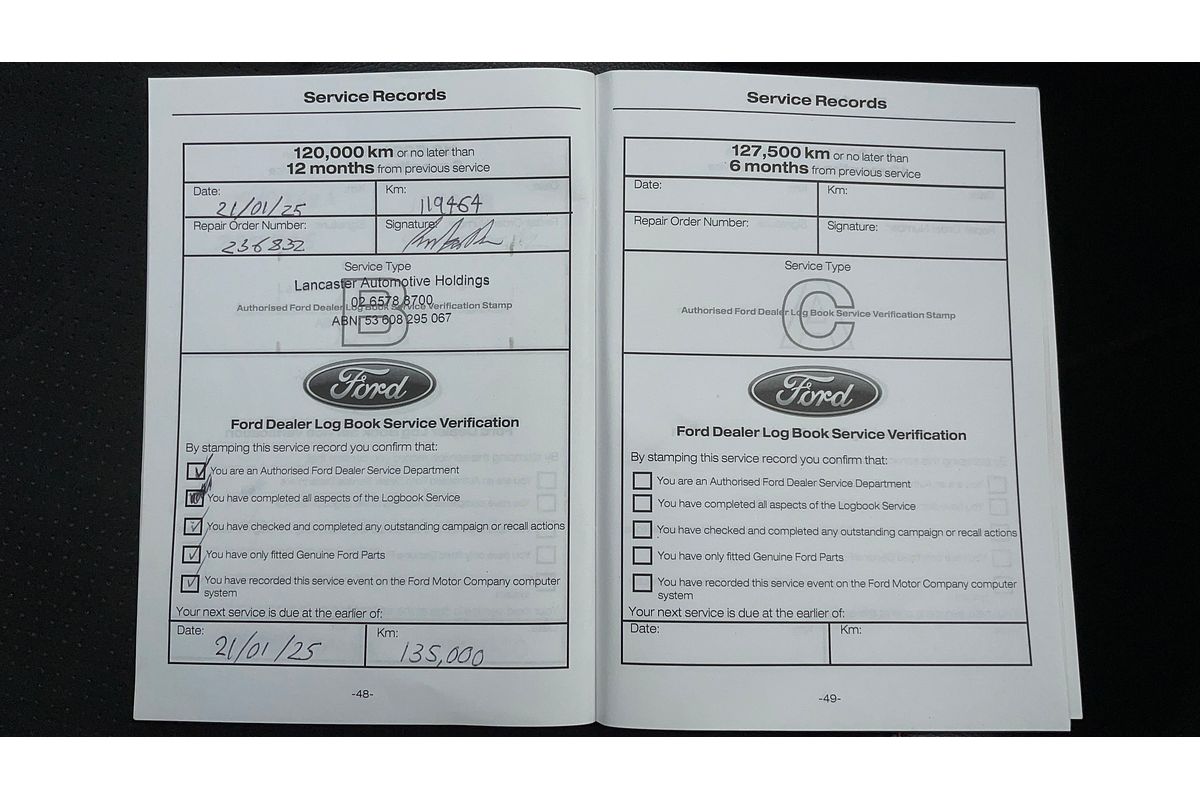 Service Records
120,000 km or no later than
12 months from previous service
Date: 21/01/25
Km: 119464
Repair Order Number: 236832
Signature:
Service Type
B
Lancaster Automotive Holdings
02 6578 8700
Authorised Ford Dealer Log Book Service Verification Stamp
ABN 53 608 295 067
Ford
Ford Dealer Log Book Service Verification
By stamping this service record you confirm that:
You are an Authorised Ford Dealer Service Department
You have completed all aspects of the Logbook Service
You have checked and completed any outstanding campaign or recall actions
You have only fitted Genuine Ford Parts
You have recorded this service event on the Ford Motor Company computer
system
Your next service is due at the earlier of:
Date: 21/01/25
Km: 135,000
-48-
Service Records
127,500 km or no later than
6 months from previous service
Date:
Km:
Repair Order Number:
Signature:
Service Type
C
Authorised Ford Dealer Log Book Service Verification Stamp
Ford
Ford Dealer Log Book Service Verification
By stamping this service record you confirm that:
You are an Authorised Ford Dealer Service Department
You have completed all aspects of the Logbook Service
You have checked and completed any outstanding campaign or recall actions
You have only fitted Genuine Ford Parts
You have recorded this service event on the Ford Motor Company computer
system
Your next service is due at the earlier of:
Date:
Km:
-49-